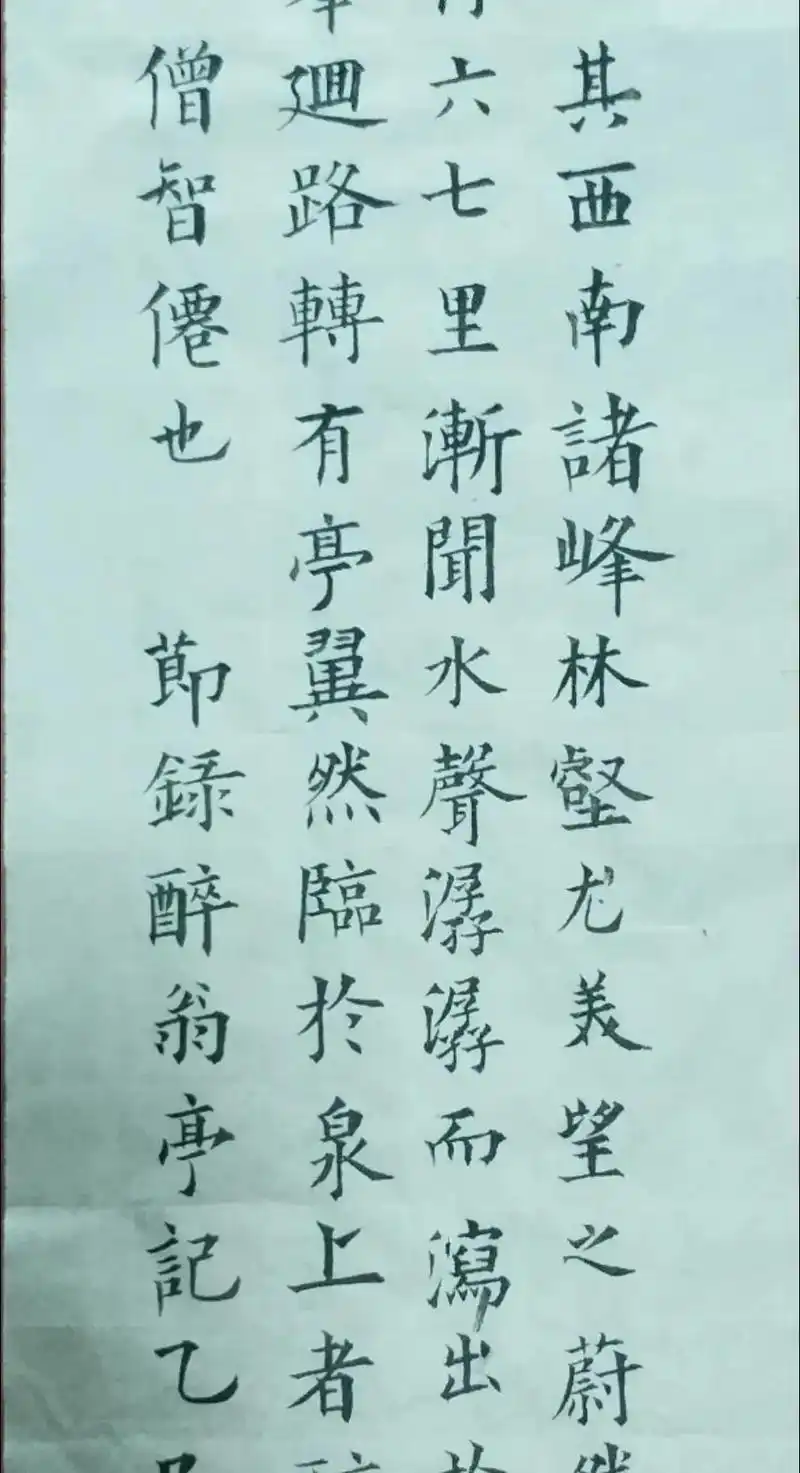 其西南諸峰林壑尤美望之蔚
六七里漸聞水聲潺潺而瀉出
廻路轉有亭翼然臨於泉上者
僧智僊也 節錄醉翁亭記乙